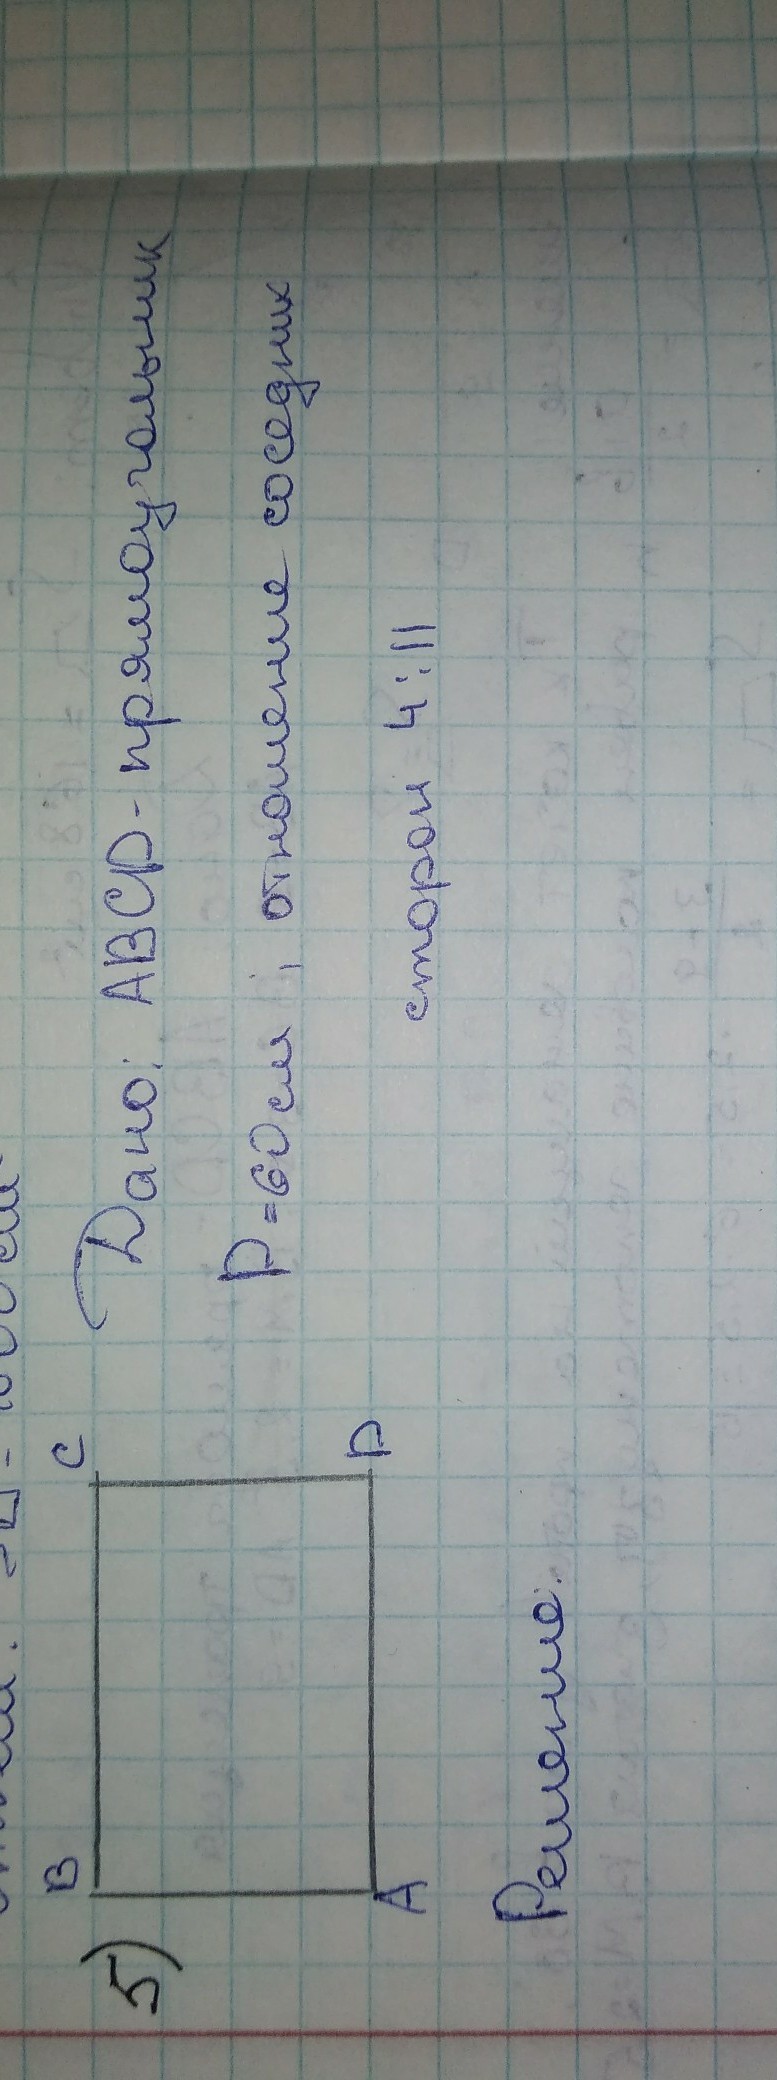 5)
B
C
A
D
Дано: ABCD - прямоугольник
P = 60 см, отношение соседних
сторон 4:11
Решение.